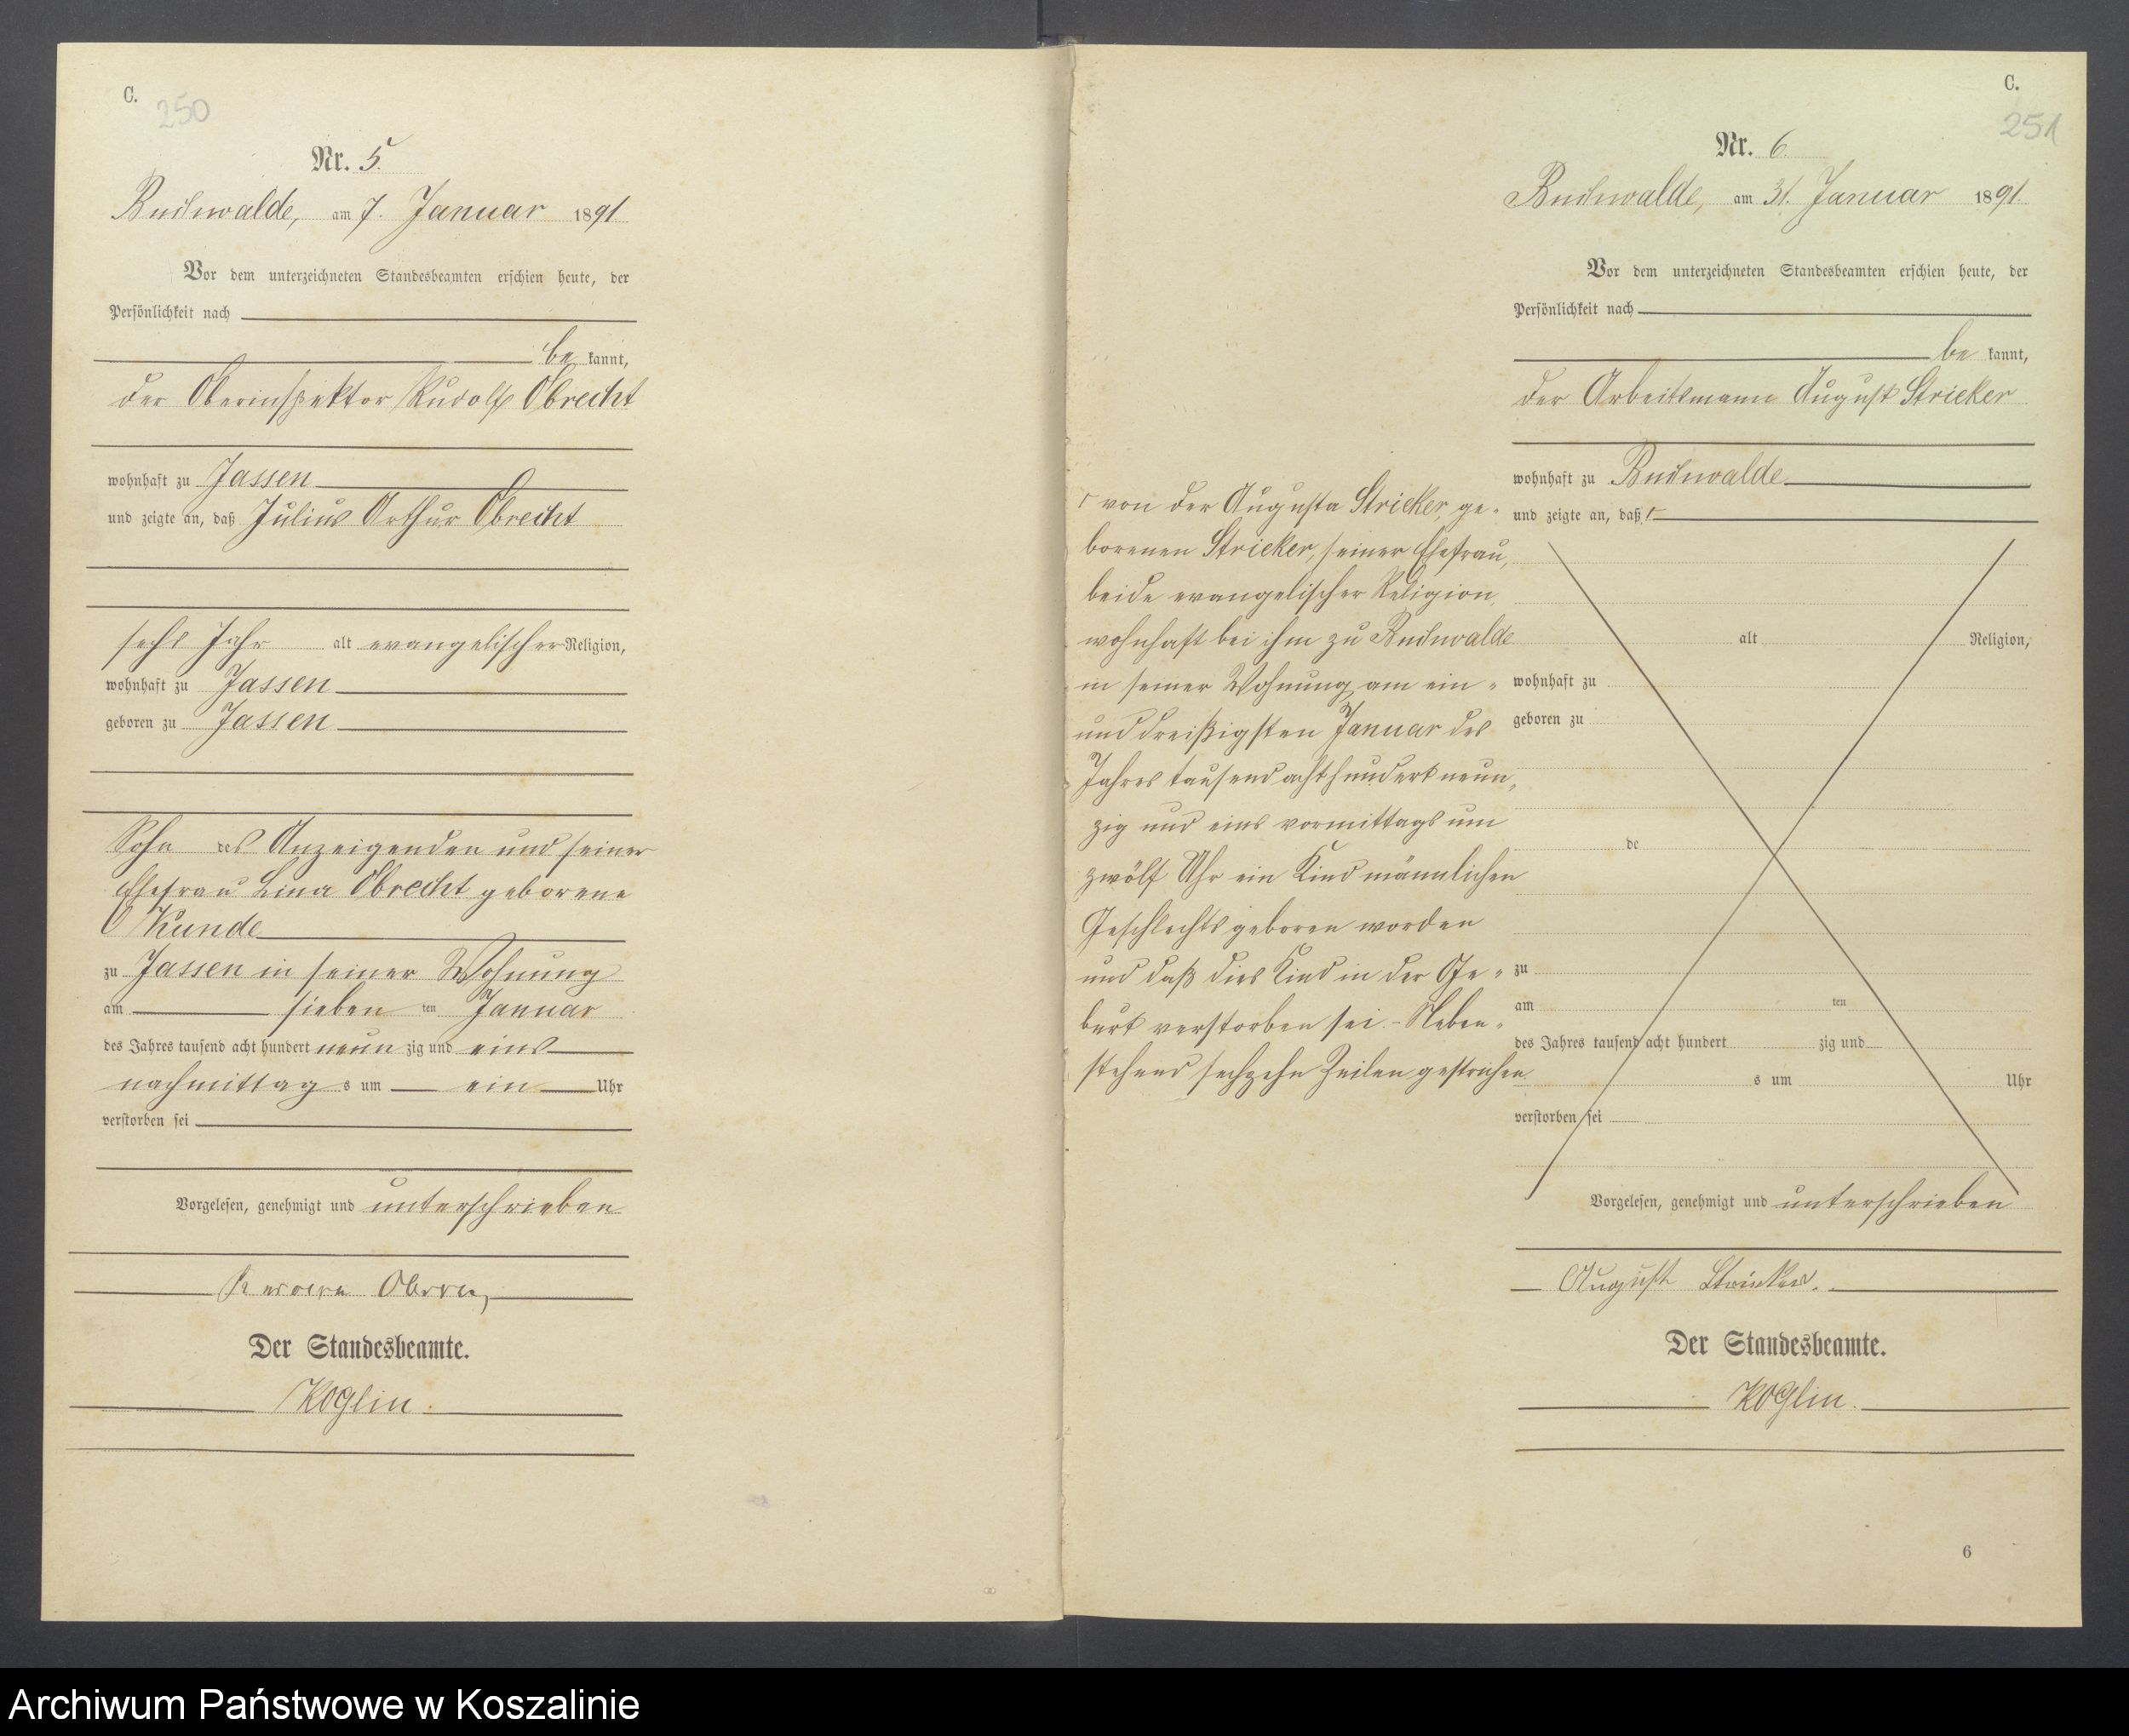 C.
250
Nr. 5.
Buchwalde, am 7. Januar 1891
Vor dem unterzeichneten Standesbeamten erschien heute, der
Persönlichkeit nach
be kannt,
der Oberinspektor Rudolf Obrecht
wohnhaft zu Jassen
und zeigte an, daß Julius Arthur Obrecht
sechs Jahr alt evangelischer Religion,
wohnhaft zu Jassen
geboren zu Jassen
Sohn des Anzeigenden und seiner
Ehefrau Lina Obrecht geborene
Kunde
zu Jassen in seiner Wohnung
am sieben ten Januar
des Jahres tausend acht hundert neun zig und eins
nachmittag s um ein Uhr
verstorben sei
Vorgelesen, genehmigt und unterschrieben
Der Standesbeamte.
Koglin.
C.
251
Nr. 6.
Buchwalde, am 31. Januar 1891.
Vor dem unterzeichneten Standesbeamten erschien heute, der
Persönlichkeit nach
be kannt,
der Arbeitsmann August Stricker
wohnhaft zu Buchwalde
und zeigte an, daß
von der Augusta Stricker, ge-
borenen Stricker, seiner Ehefrau,
beide evangelischer Religion,
wohnhaft bei ihm zu Buchwalde
in seiner Wohnung am ein-
und dreißigsten Januar des
Jahres tausend achthundert neun-
zig und eins vormittags um
zwölf Uhr ein Kind männlichen
Geschlechts geboren worden
und daß dies Kind in der Ge-
burt verstorben sei. - Neben-
stehend sechzehn Zeilen gestrichen.
alt Religion,
wohnhaft zu
geboren zu
de
zu
am ten
des Jahres tausend acht hundert zig und
s um Uhr
verstorben sei
Vorgelesen, genehmigt und unterschrieben
August Stricker.
Der Standesbeamte.
Koglin.
6
Archiwum Państwowe w Koszalinie